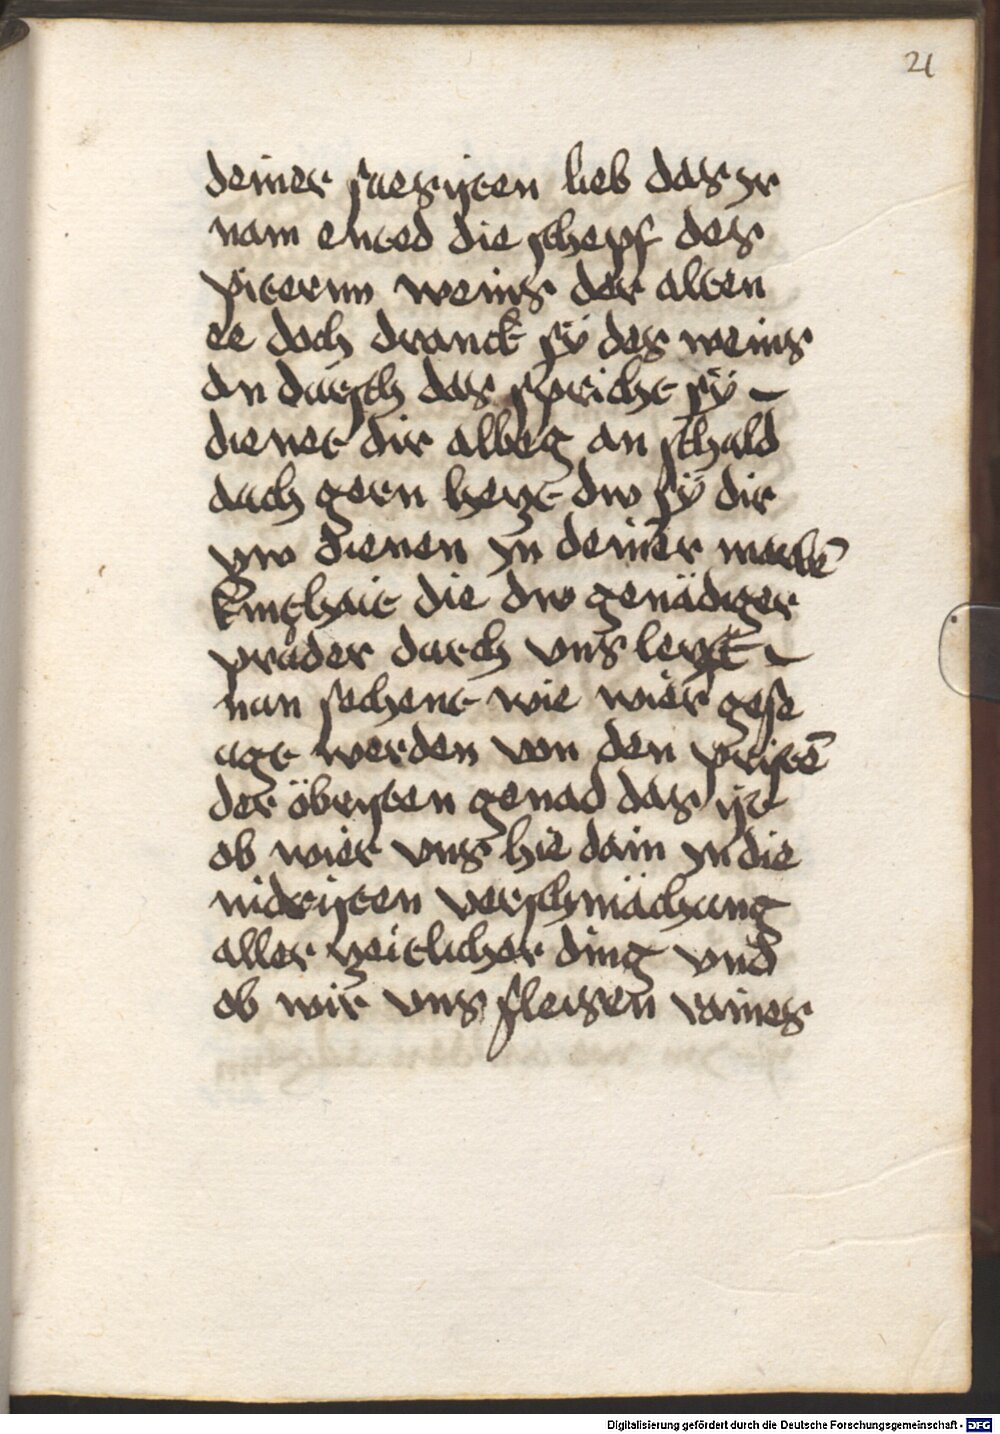 21
deiner suesisten lieb das yr
nam ented die schepf des
piternn weins der alten
ee doch dranck sÿ des weins
an dursch das spricht sÿ
dienet dir albeg an schuld
doch gern heyt dw sÿ dir
yw dienen yn deiner
kinthait die dw genädiger
prader durch vns leyst
nun sechent wie wier gese
ugt werden von den pristē
der öbristen genad das ist
ob wier vns hie dain yn die
nidristen verschmächung
aller zeitlicher ding vnd
ob wir vns fleisen raines
Digitalisierung gefördert durch die Deutsche Forschungsgemeinschaft - DFG